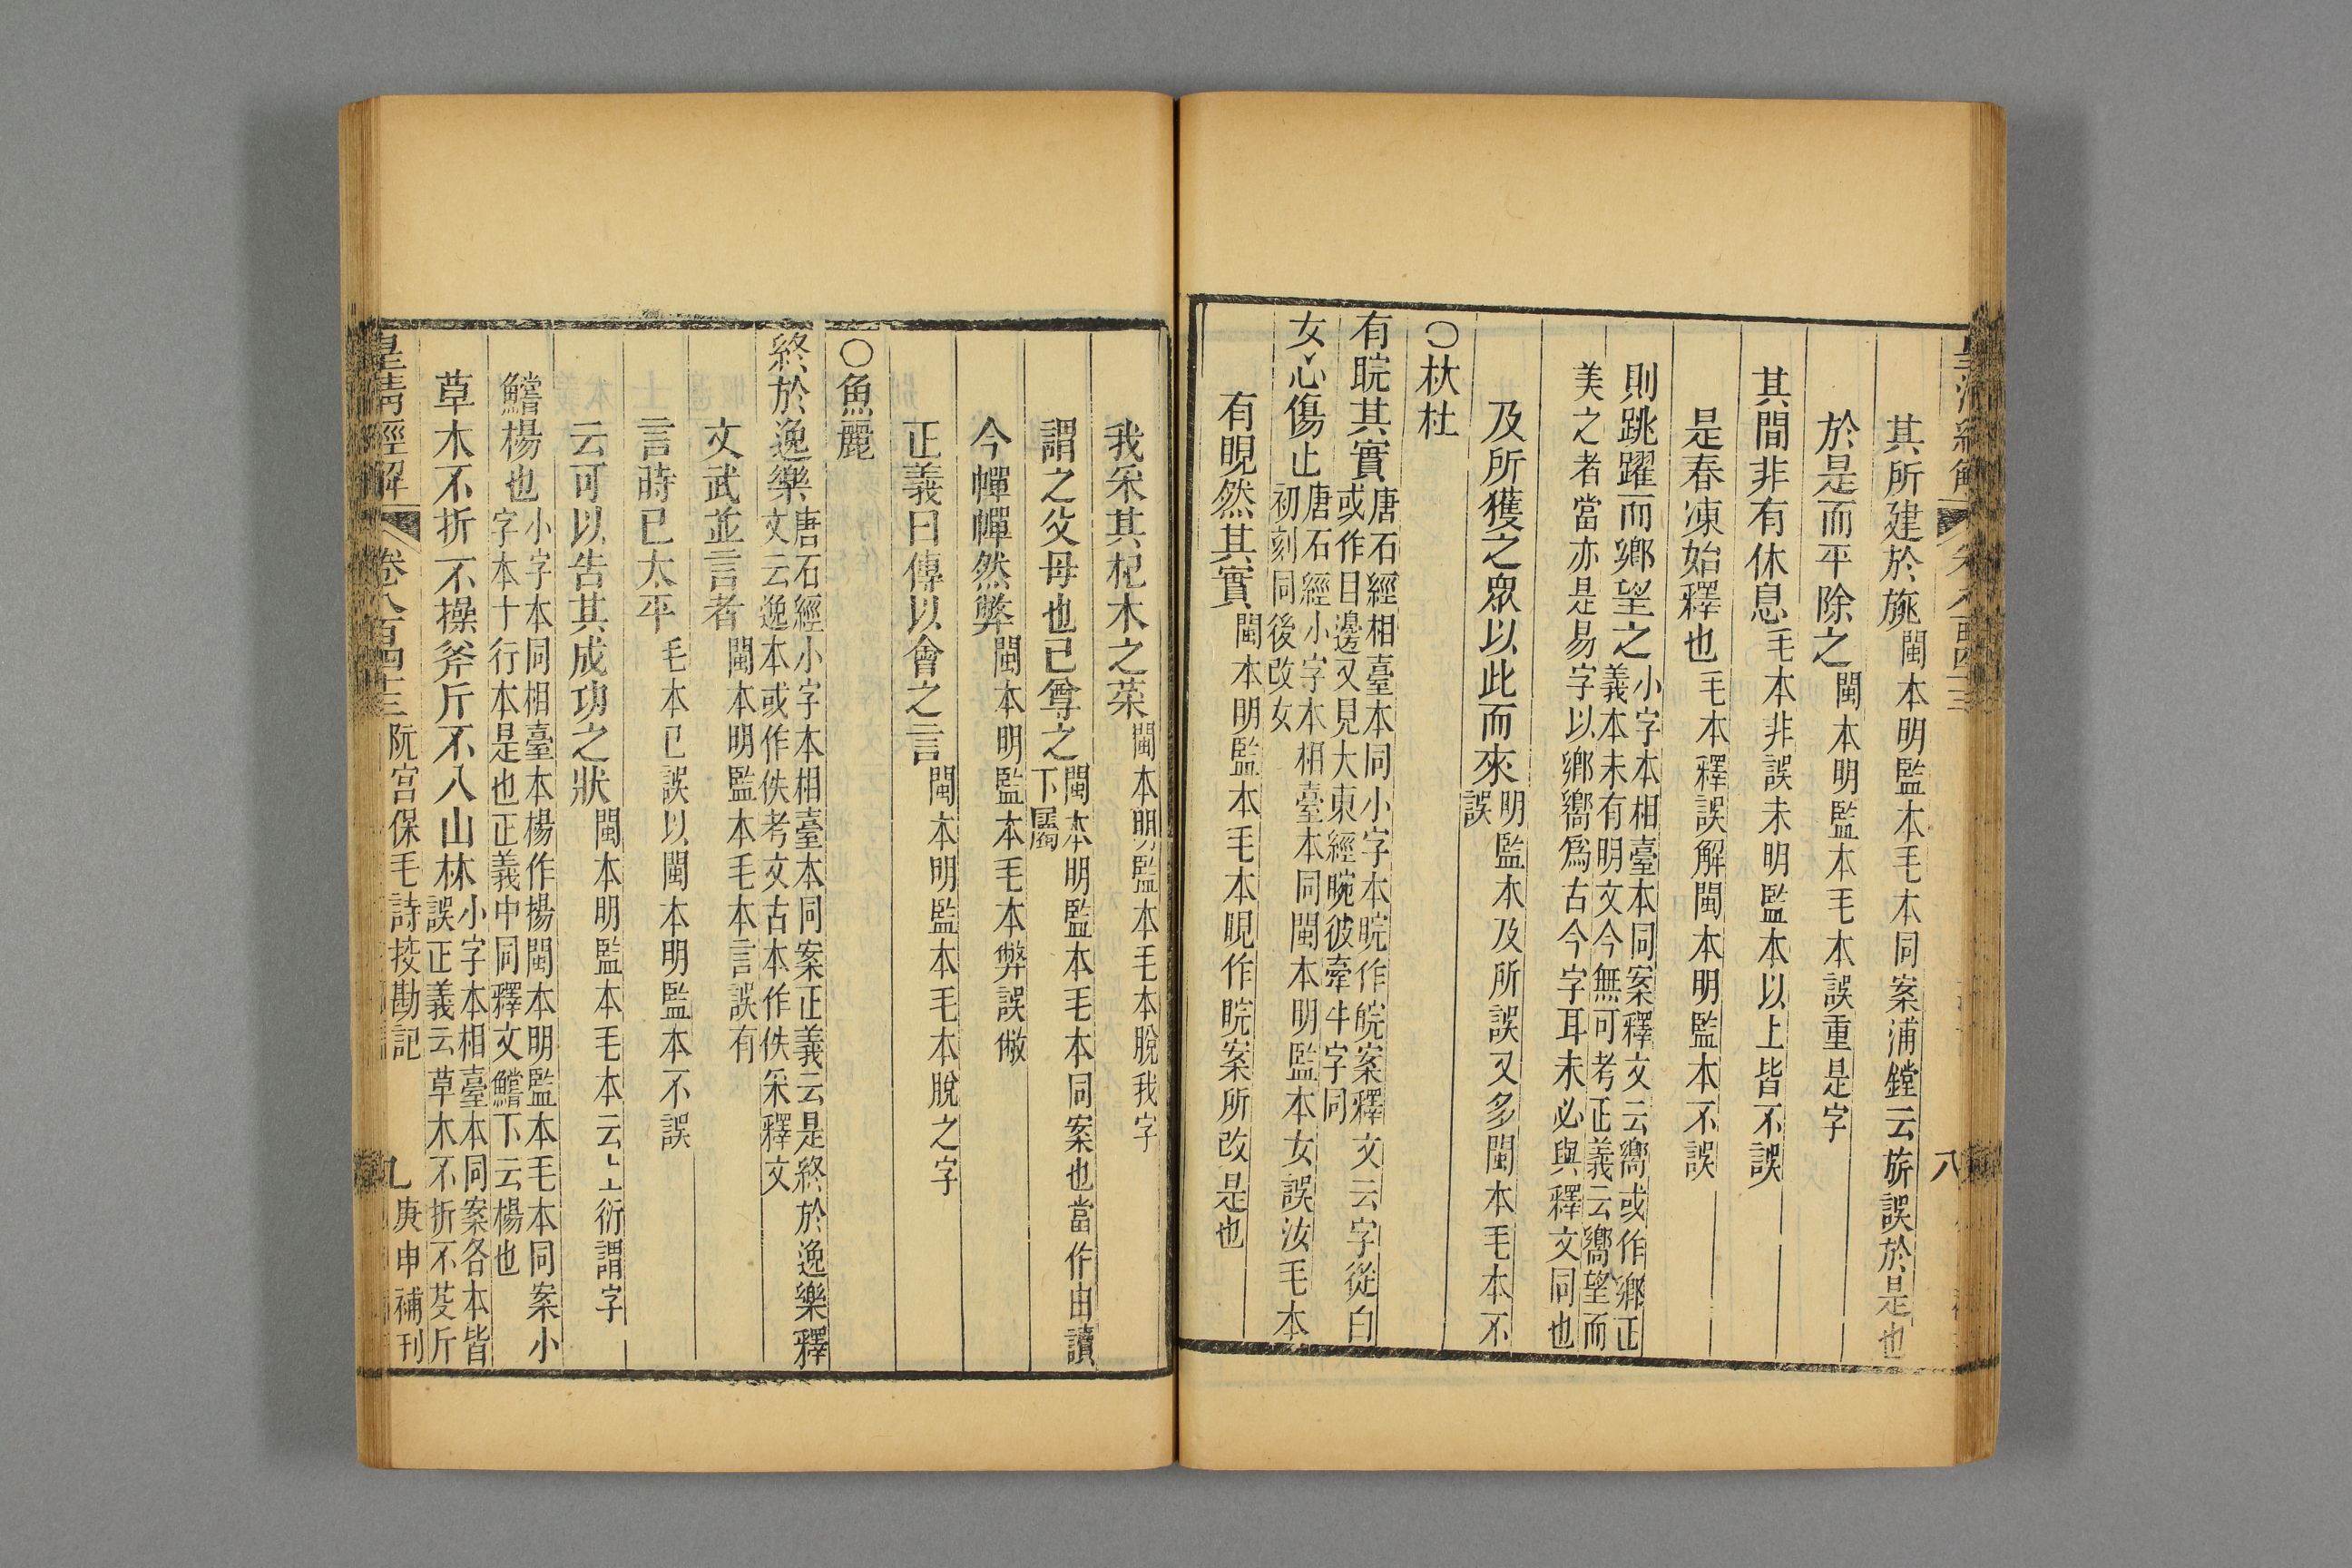 皇清經解 卷八百四十三 八
其所建於旐閩本明監本毛本同案浦鏜云旂誤於是也
於是而平除之閩本明監本毛本誤重是字
其間非有休息毛本非誤未明監本以上皆不誤
是春凍始釋也毛本釋誤解閩本明監本不誤
則跳躍而鄉望之小字本相臺本同案釋文云嚮或作鄉正
義本未有明文今無可考正義云嚮望而
美之者當亦是易字以鄉嚮爲古今字耳未必與釋文同也
及所獲之眾以此而來明監本及所誤又多閩本毛本不
誤
○杕杜
有睆其實唐石經相臺本同小字本睆作皖案釋文云字從白
或作目邊又見大東經睕彼牽牛字同
女心傷止唐石經小字本相臺本同閩本明監本女誤汝毛本
初刻同後改女
有睍然其實閩本明監本毛本睍作睆案所改是也
我采其杞木之菜閩本明監本毛本脫我字
謂之父母也己尊之閩本明監本毛本同案也當作由讀
下屬
今幝幝然弊閩本明監本毛本弊誤敝
正義曰傳以會之言閩本明監本毛本脫之字
○魚麗
終於逸樂唐石經小字本相臺本同案正義云是終於逸樂釋
文云逸本或作佚考文古本作佚采釋文
文武並言者閩本明監本毛本言誤有
言時已太平毛本已誤以閩本明監本不誤
云可以告其成功之狀閩本明監本毛本云上衍謂字
鱨楊也小字本同相臺本楊作揚閩本明監本毛本同案小
字本十行本是也正義中同釋文鱨下云楊也
草木不折不操斧斤不入山林小字本相臺本同案各本皆
誤正義云草木不折不芟斤
皇清經解 卷八百四十三 阮宮保毛詩挍勘記 九 庚申補刊